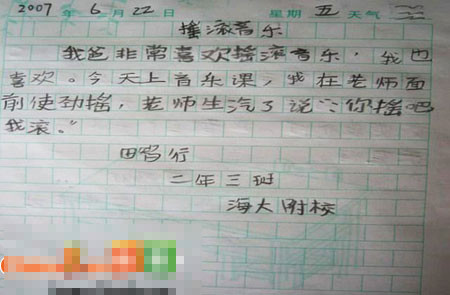 2007 年 6 月 22 日 星期 五 天气
摇滚音乐
我爸非常喜欢摇滚音乐，我也
喜欢。今天上音乐课，我在老师面
前使劲摇，老师生汽了说：“你摇吧
我滚。”
田 行
二年三班
海大附校